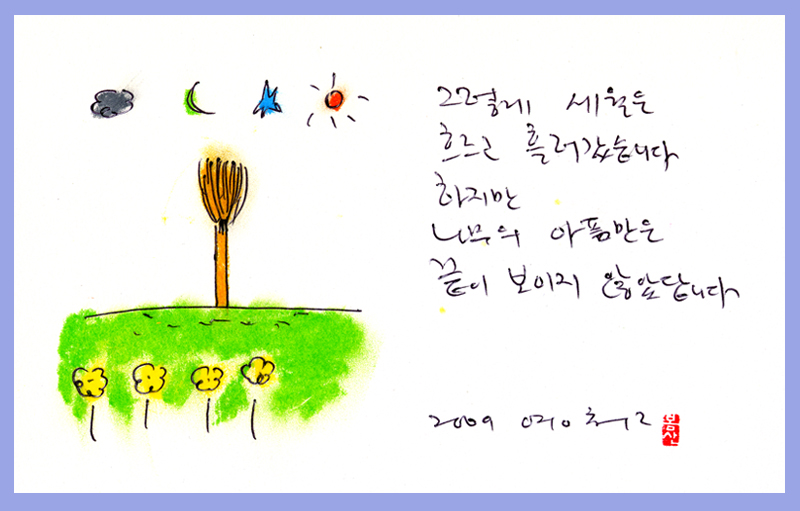 그렇게 세월은
흐르고 흘러갔습니다
하지만
나무의 아픔만은
끝이 보이지 않았답니다
2009